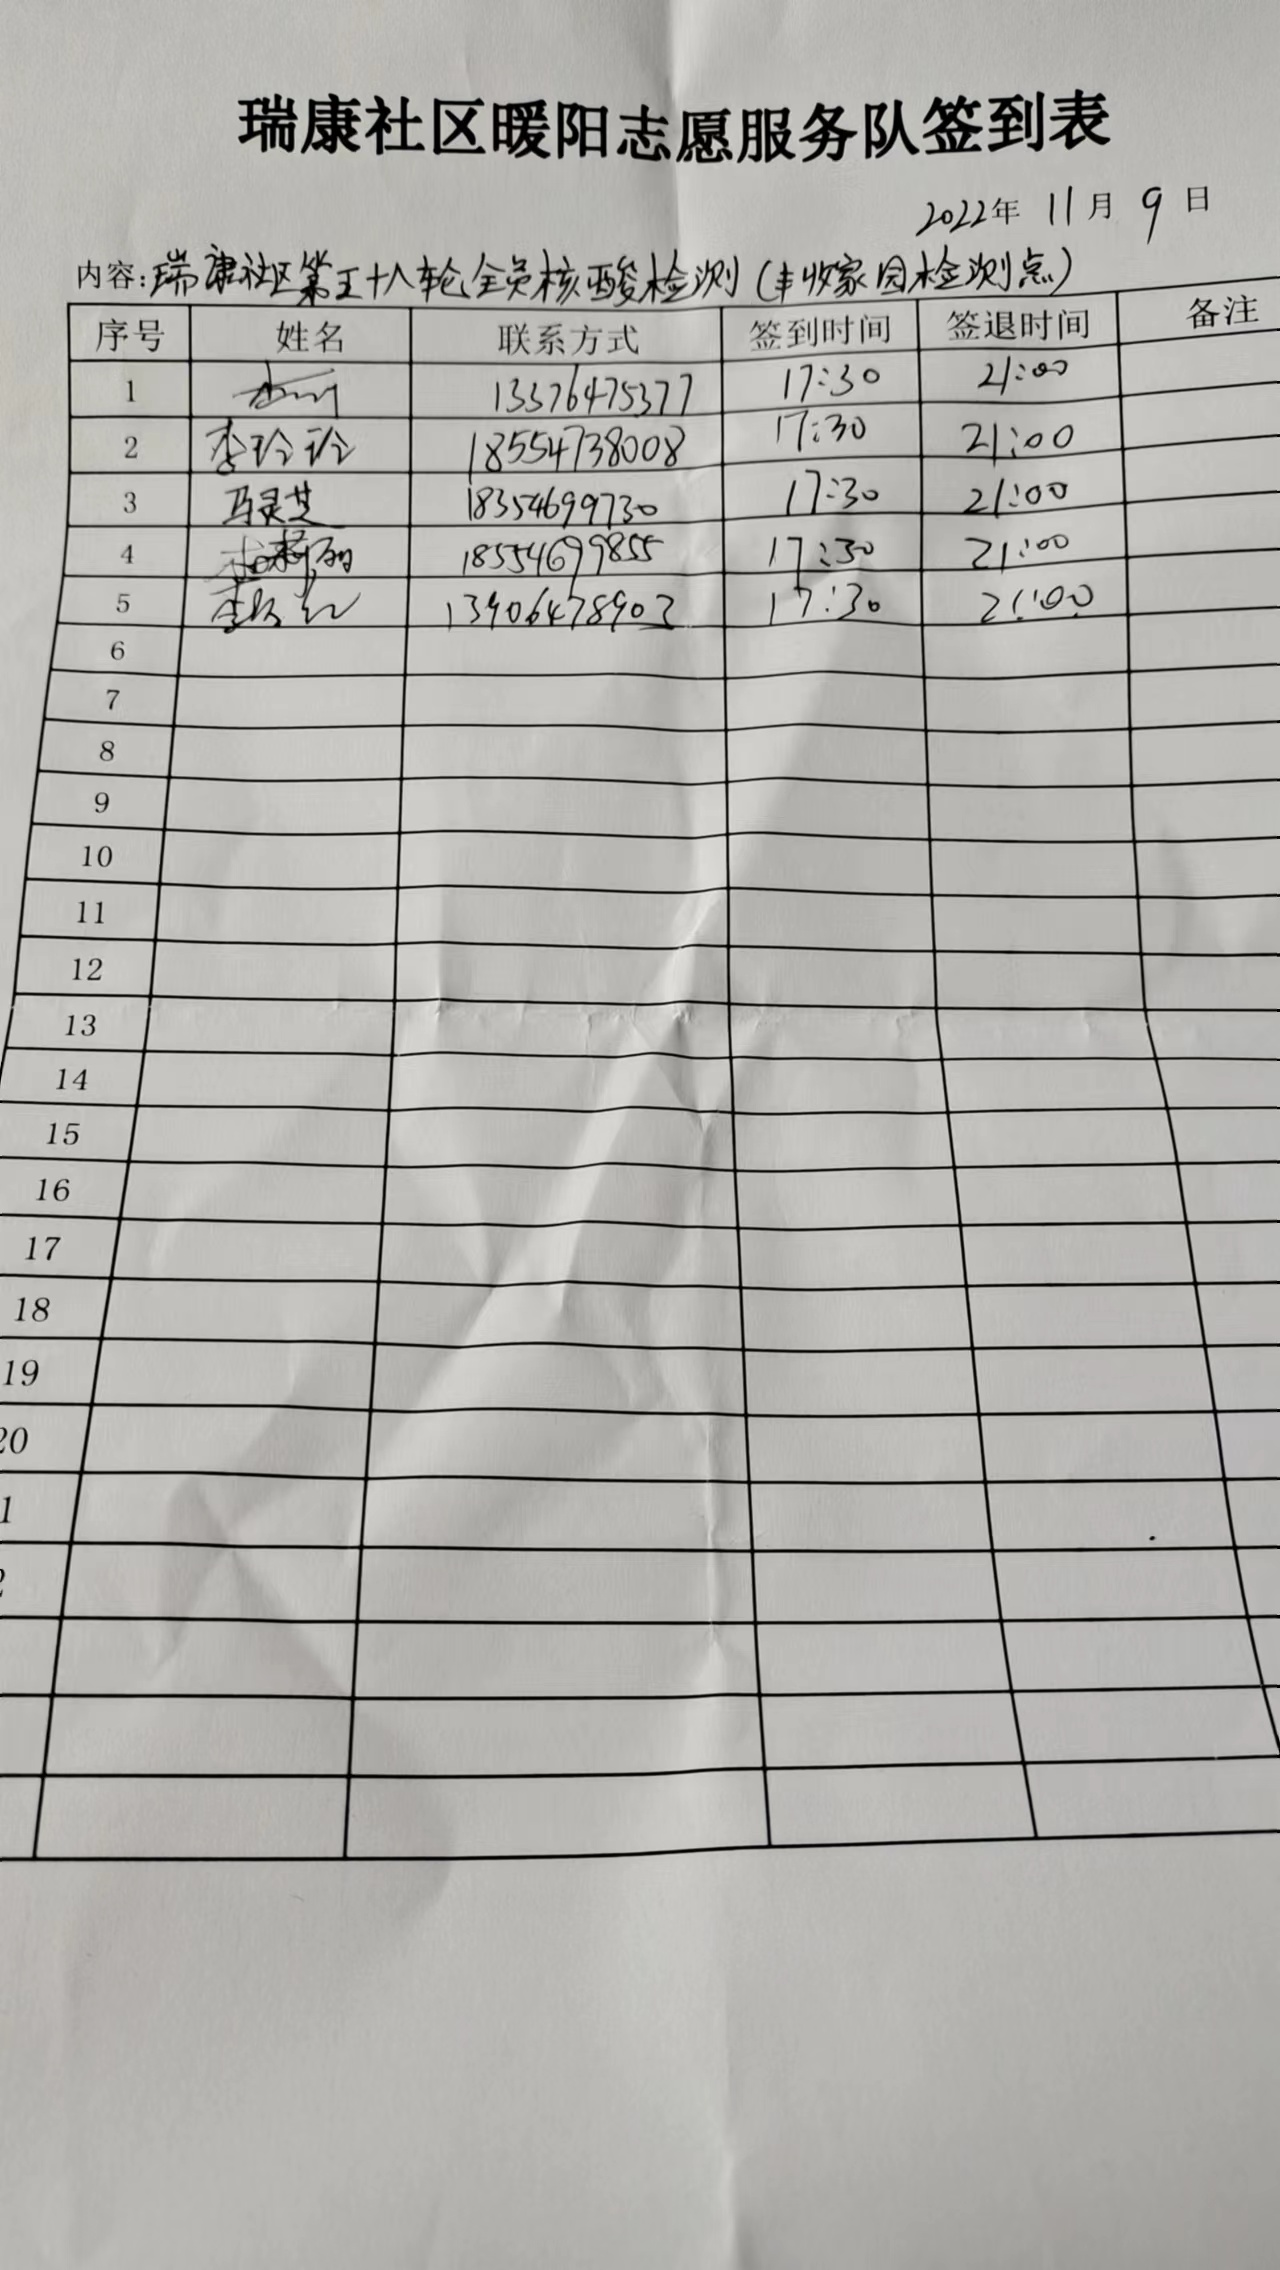 瑞康社区暖阳志愿服务队签到表
2022年 11月 9日
内容:瑞康社区第五十八轮全员核酸检测(丰收家园检测点)
序号 姓名 联系方式 签到时间 签退时间 备注
1 13376475377 17:30 21:00
2 李玲玲 18554738008 17:30 21:00
3 马灵芝 18354699730 17:30 21:00
4 18554699855 17:30 21:00
5 13906478903 17:30 21:00
6
7
8
9
10
11
12
13
14
15
16
17
18
19
20
1
2